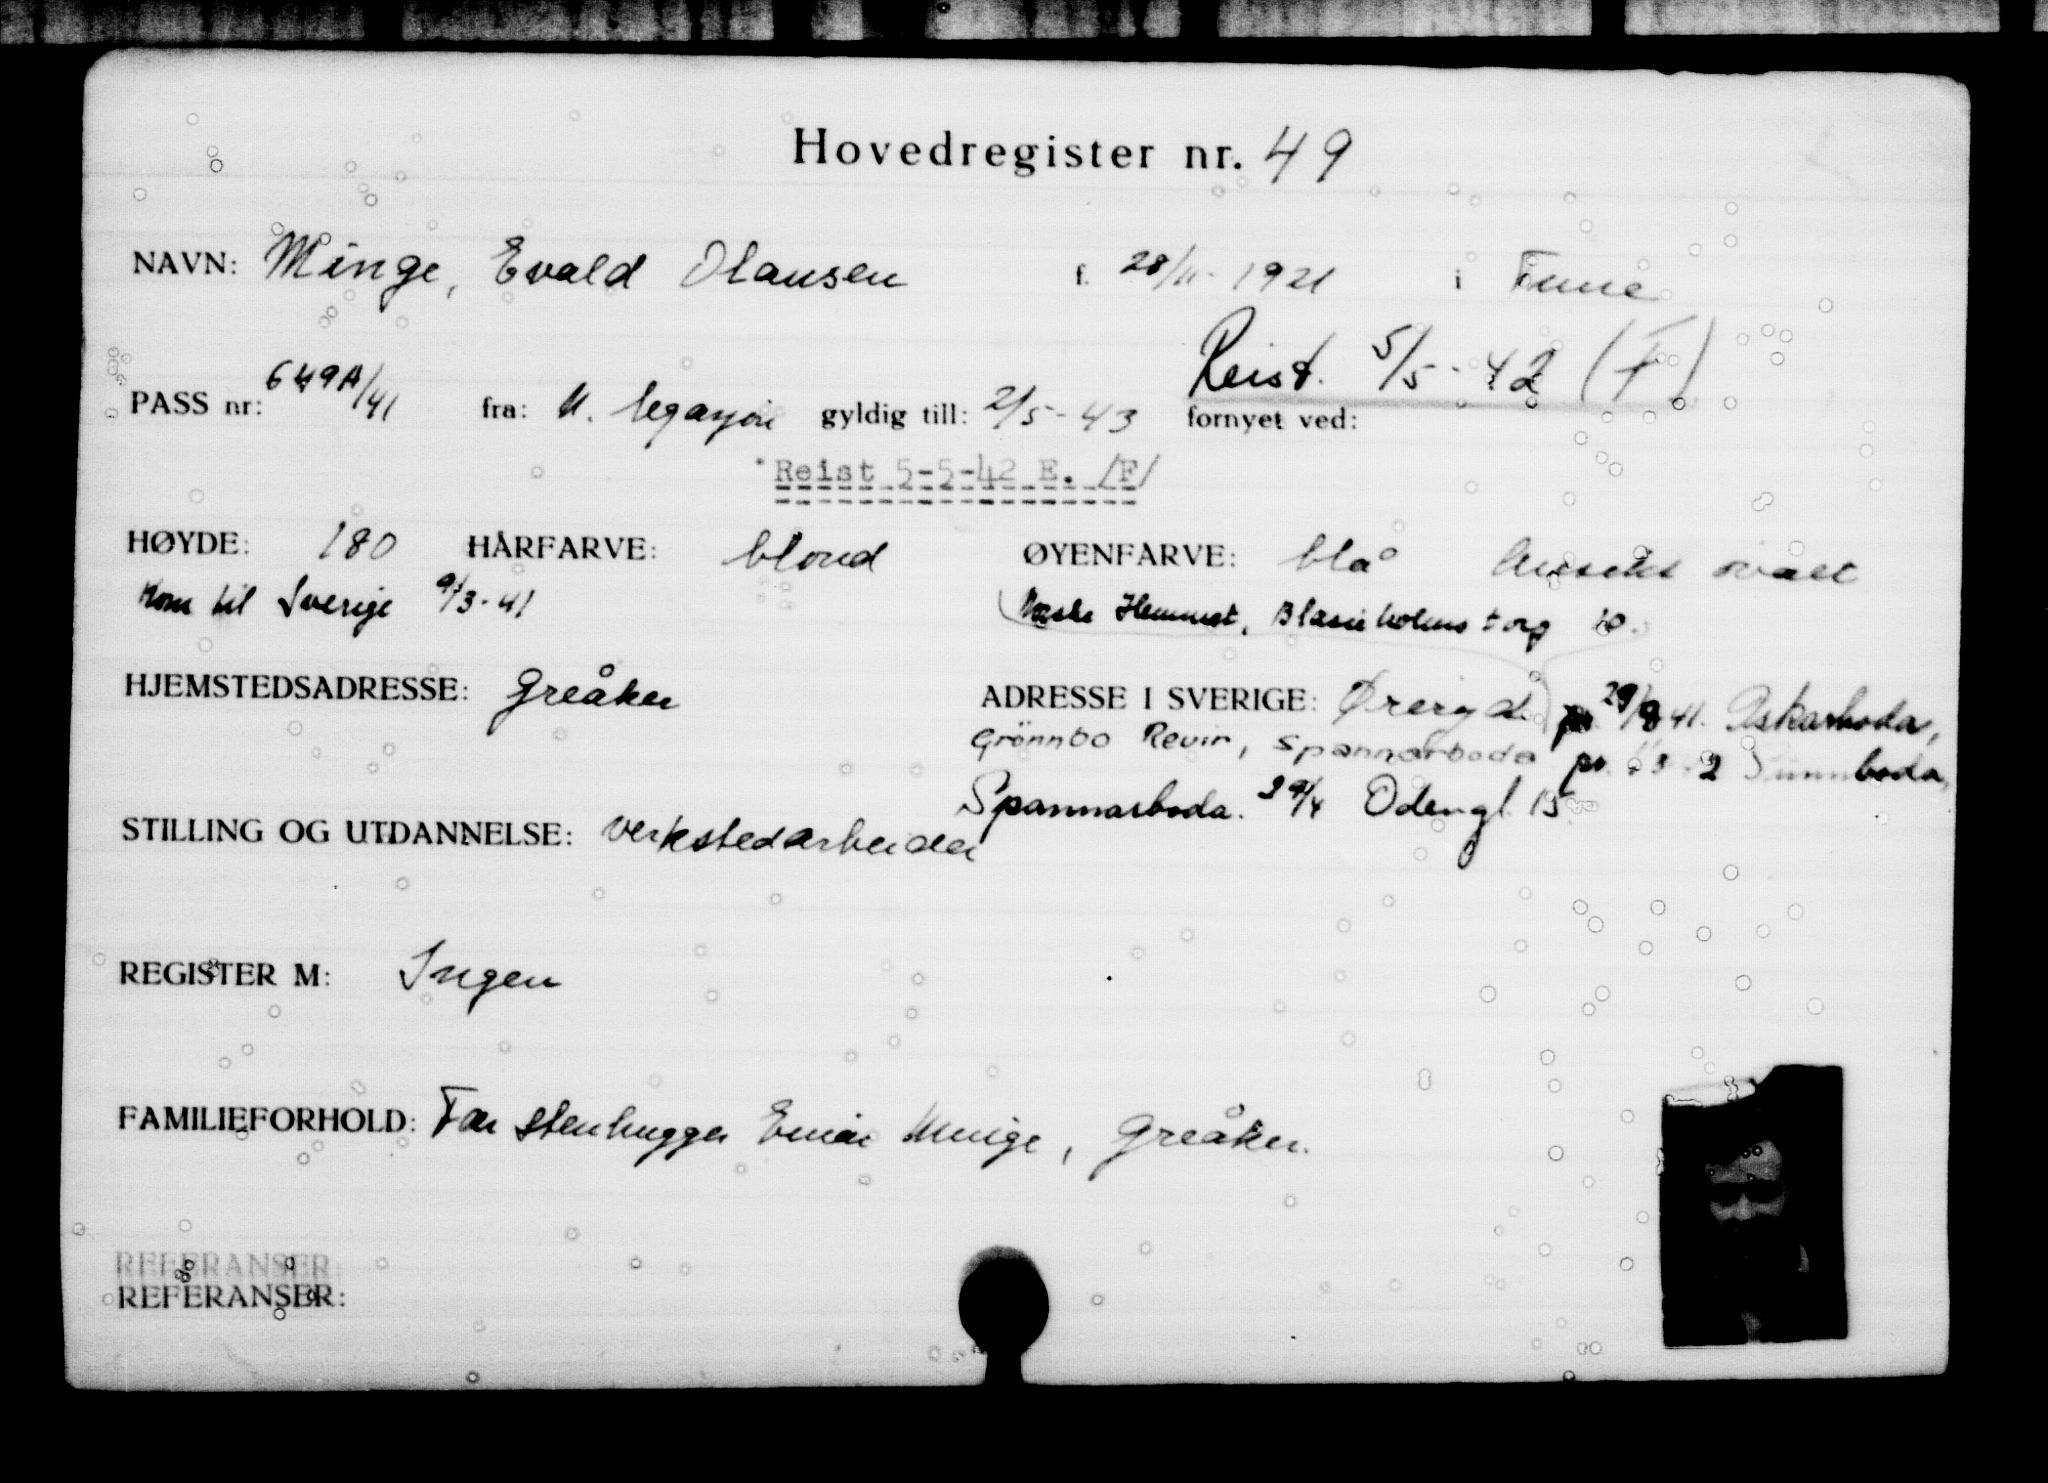 Hovedregister nr. 49
NAVN: Minge, Evald Olausen f. 28/11-1921 i Tune
Reist. 5/5-42 (F)
PASS nr: 649A/41 fra: N. legasjon gyldig till: 2/5-43 fornyet ved:
Reist 5-5-42 E. /F/
HØYDE: 180 HÅRFARVE: blond ØYENFARVE: blå Ansikt ovalt
Kom til Sverige 9/3-41 Norske Hemmet, Blasieholms torg 10.
HJEMSTEDSADRESSE: Greåker ADRESSE I SVERIGE: Øreryd pr. 29/8 41. Askarboda,
Grönnbo Revir, Spannarboda pr.
Spannarboda. 29/4 Odengt. 15
STILLING OG UTDANNELSE: Verkstedarbeider
REGISTER M: Ingen
FAMILIEFORHOLD: Far stenhugger Einar Minge, Greåker.
REFERANSER:
REFERANSER: